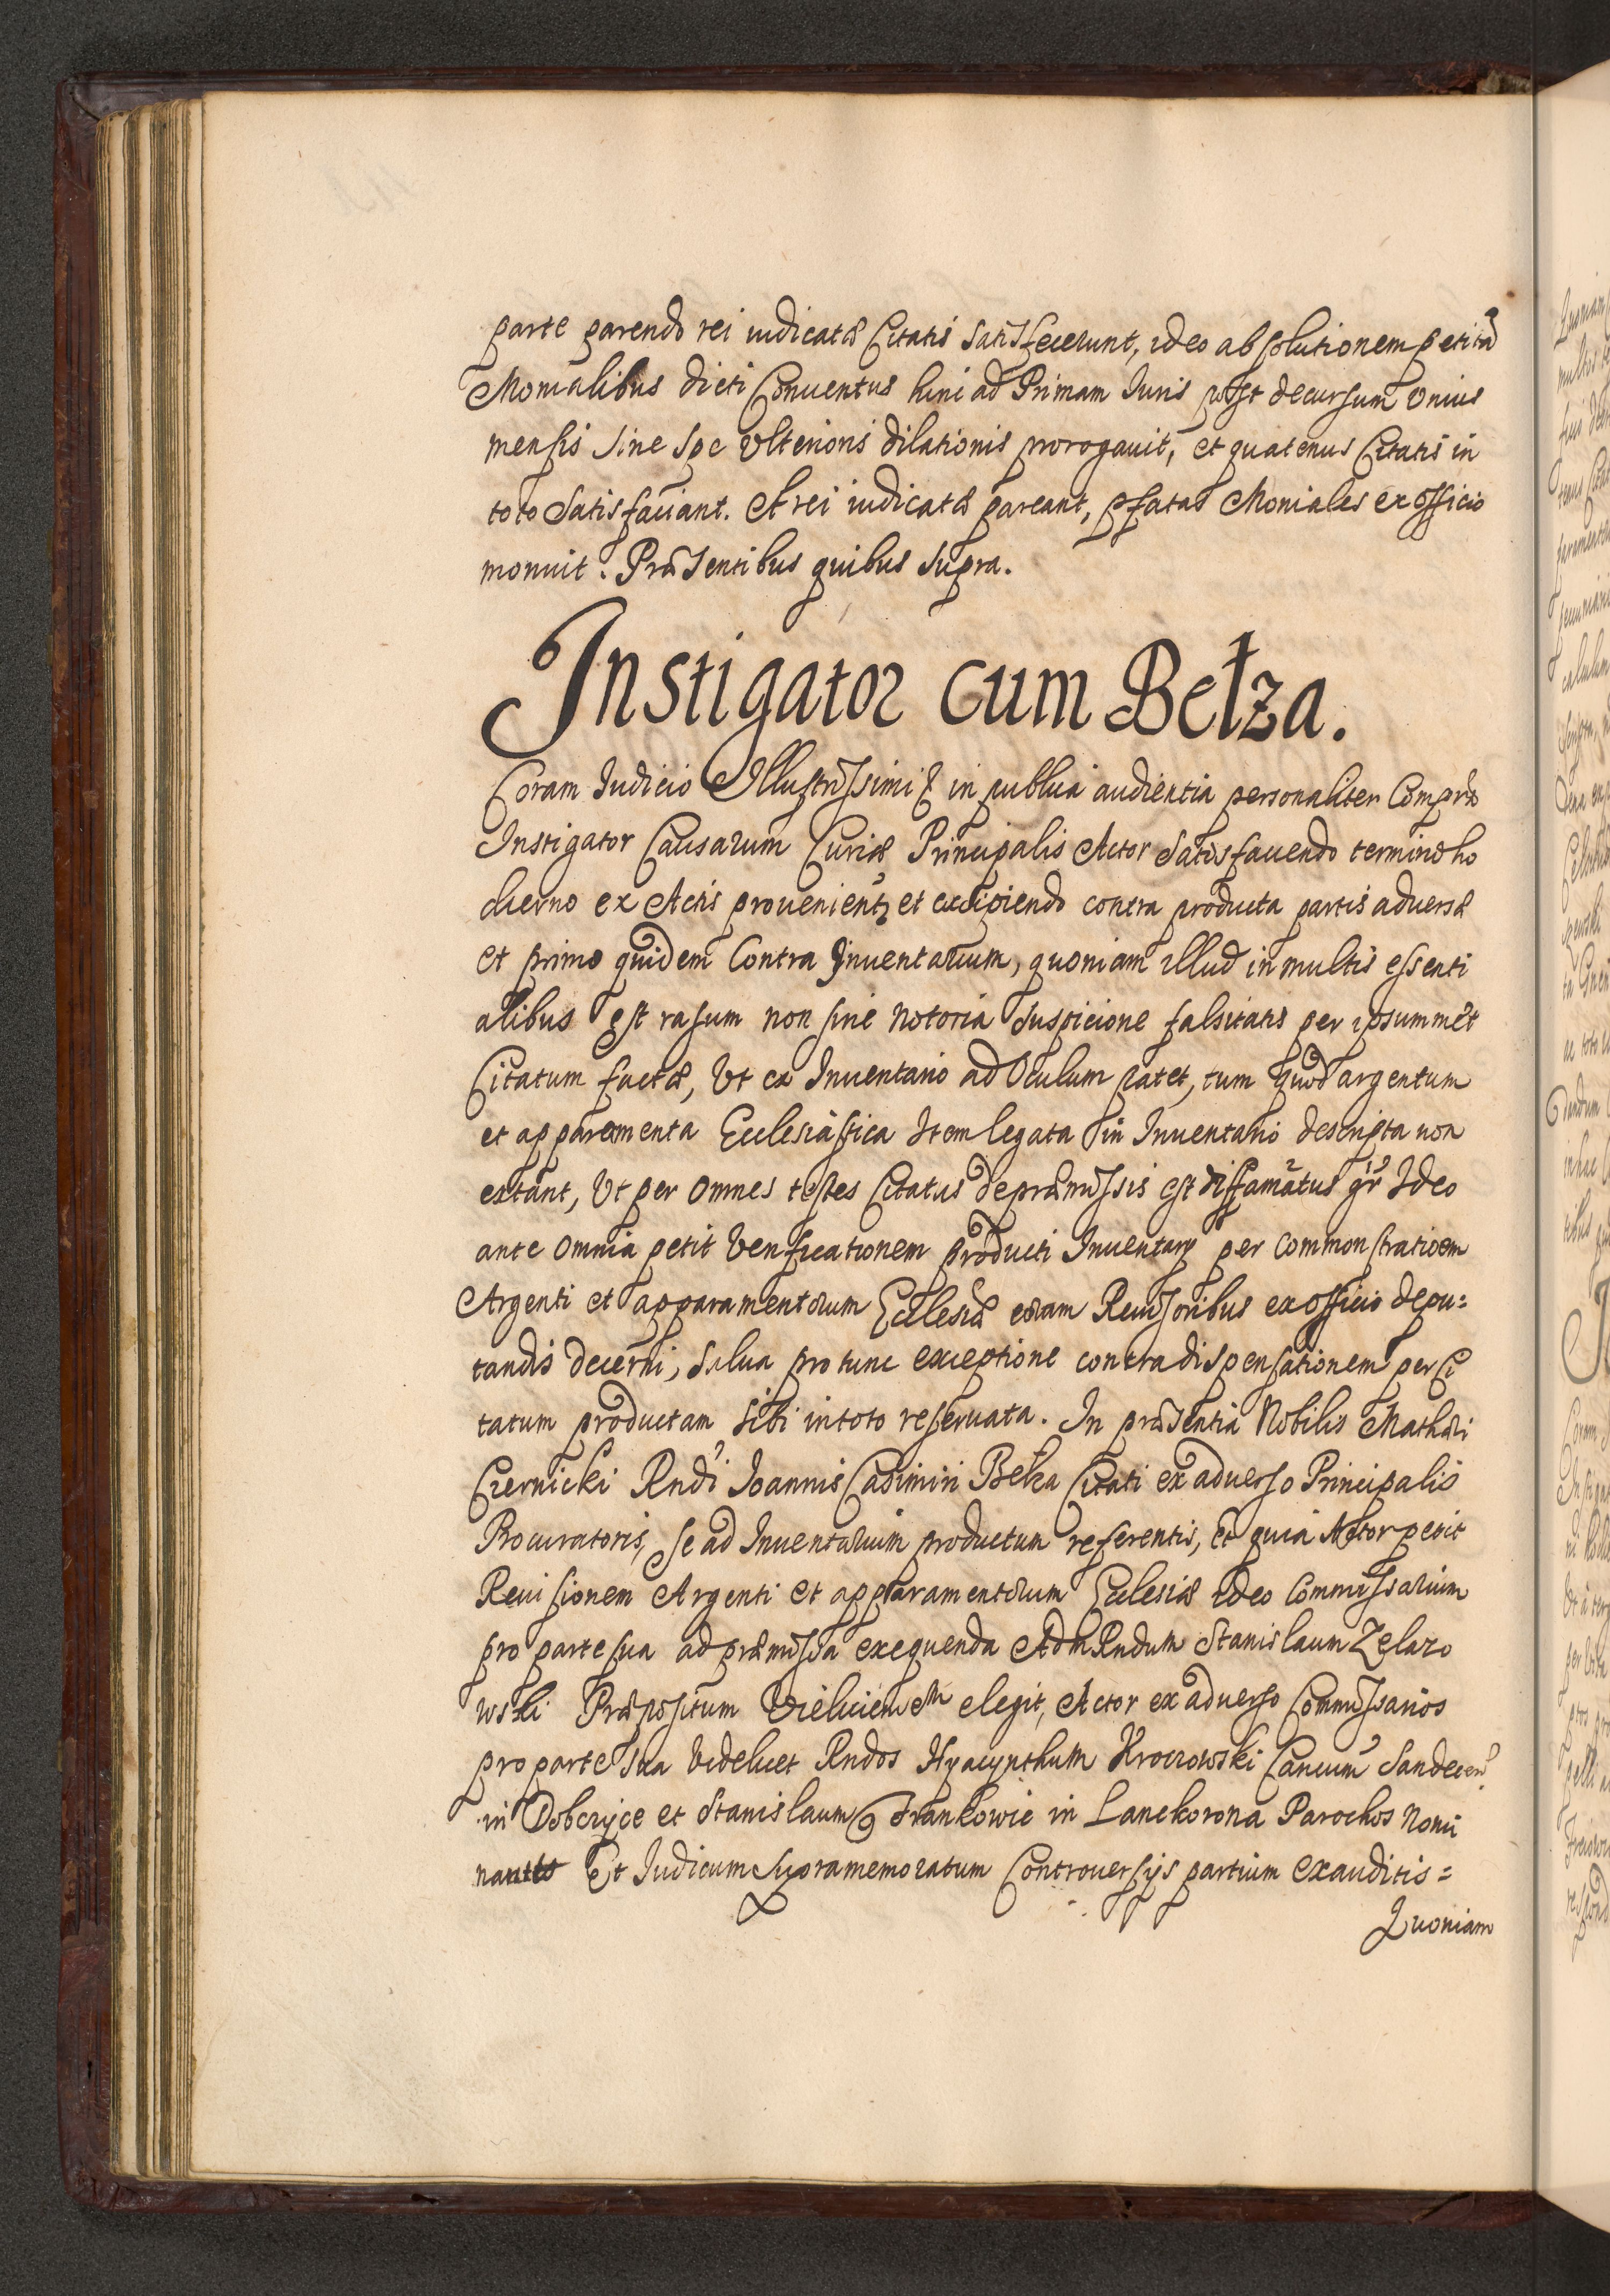 parte parendo rei iudicatæ Citatis satisfecerunt, ideo absolutionem petitā
Monialibus dicti Conuentus hini ad Primam Iuris post decursum vnius
mensis sine spe vlterioris dilationis prorogauit, et quatenus Citatis in
toto satisfaciant. et rei iudicatæ pareant, pfatas Moniales ex officio
monuit. Præsentibus quibus supra.
Instigator cum Bełza.
Coram Iudicio Illustrissimi & in publica audientia personaliter Compēs
Instigator Causarum Curiæ Principalis Actor satisfaciendo termino ho
dierno ex Actis prouenienti et excipiendo contra producta partis aduersæ
et primo quidem Contra Inuentarium, quoniam illud in multis essenti
alibus est rasum non sine notoria suspicione falsitatis per ipsummet
Citatum factæ, vt ex Inuentario ad Oculum patet, tum quod argentum
et apparamenta Ecclesiastica Item legata in Inuentario descripta non
extant, vt per omnes testes Citatus de præmissis est diffamatus gr̄ Ideo
ante omnia petit verificationem producti Inuentarij per commonstratioem
Argenti et apparamentorum Ecclesiæ coram Reuisoribus ex officio depu=
tandis decerni, salua pro tunc exceptione contra dispensationem per Ci
tatum productam sibi in toto reseruata. In præsentia Nobilis Mathæi
Czernicki Rndi Ioannis Casimiri Bełza Citati ex aduerso Principalis
Procuratoris, se ad Inuentarium productum referentis, Et quia Actor petit
Reuisionem Argenti et apparamentorum Ecclesiæ ideo Commissarium
pro parte sua ad præmissa exequenda Adm Rndum Stanislaum Zelazo
wski Præpositum Vieliciensem elegit, Actor ex aduerso Commissarios
pro parte sua videlicet Rndos Hyacynthum Kroczowski Cancum Sandecen
in Dobczyce et Stanislaum Frankowic in Lanckorona Parochos nomi
nantes Et Iudicium supramemoratum Controuersijs partium exauditis=
Quoniam